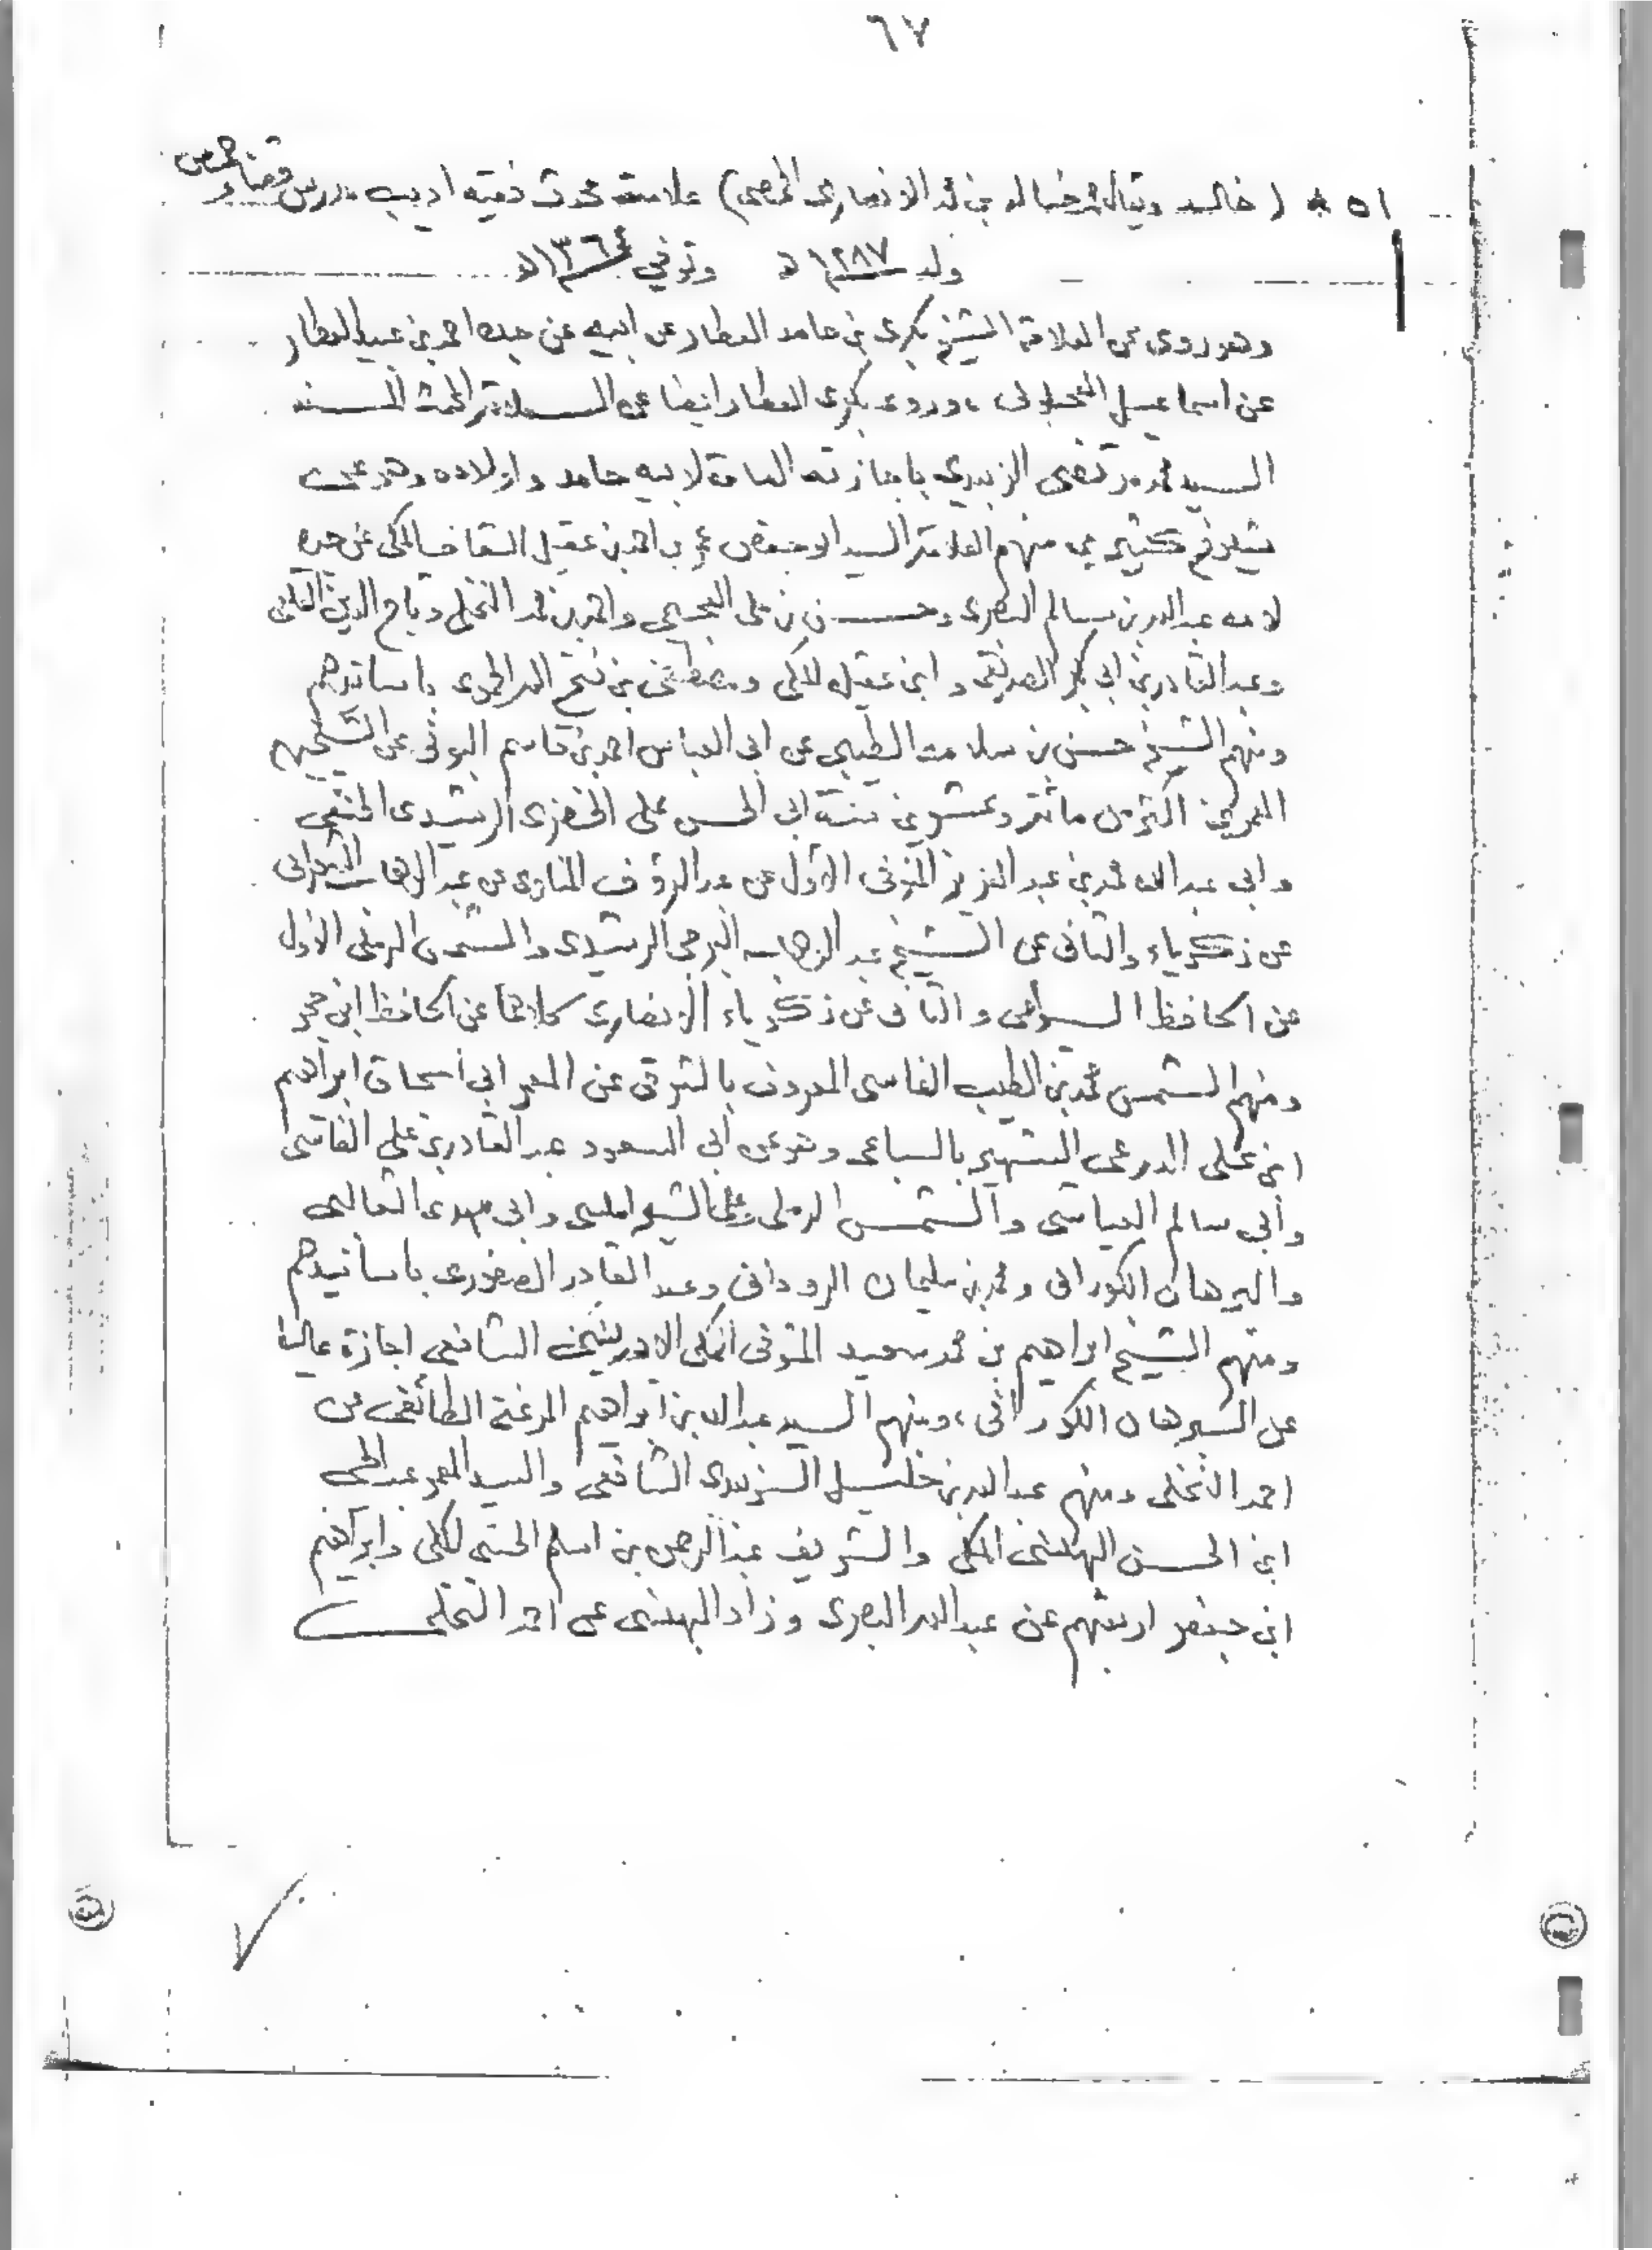 ٦٧
٥١ * (خالد ويقال محمد خالد بن محمد الانصاري الحمصي) علامة محدث فقيه اديب مدرس قضاء حمص
ولد ١٢٨٧ه وتوفي ١٣٦٤ه
وهو روى عن العلامة الشيخ بكري بن حامد العطار عن ابيه عن جده احمد بن عبيد العطار
عن اسماعيل العجلوني ، وروى بكري العطار ايضا عن العلامة المحدث المسند
السيد محمد مرتضى الزبيدي باجازته العامة لابيه حامد واولاده وهو عن
شيوخ كثيرين منهم العلامة السيد ابو حفص عمر بن احمد بن عقيل السقاف المكي عن جده
لامه عبد الله بن سالم البصري وحسن بن علي العجيمي واحمد بن محمد النخلي وتاج الدين القلعي
وعبد القادر بن ابي بكر الصديقي و ابن عقيل المكي ومصطفى بن فتح الله الحموي باسانيدهم
ومنهم الشيخ حسن بن سلامة الطيبي عن ابي العباس احمد بن قاسم البوني عن الشيخين
المعمرين اكثر من مائة وعشرين سنة ابي الحسن علي الخضري الرشيدي الحنفي
وابي عبد الله محمد بن عبد العزيز المنوفي الاول عن عبد الرؤف المناوي عن عبد الوهاب الشعراني
عن زكرياء والثاني عن الشيخ عبد الوهاب البرجي الرشيدي والشمس الرملي الاول
عن الحافظ السيوطي والثاني عن زكرياء الانصاري كلاهما عن الحافظ ابن حجر
ومنهم الشمس محمد بن الطيب الفاسي المعروف بالشرقي عن المعمر ابي اسحاق ابراهيم
ابن علي الدرعي الشهير بالسباعي وهو عن ابي السعود عبد القادر بن علي الفاسي
وابي سالم العياشي والشمس الرملي وعلي الشبراملسي وابي مهدي الثعالبي
والبرهان الكوراني ومحمد بن سليمان الروداني وعبد القادر الصفوري باسانيدهم
ومنهم الشيخ ابراهيم بن محمد سعيد المنوفي المكي الادريسي الشافعي اجازة عالية
عن البرهان الكوراني ، ومنهم السيد عبد الله بن ابراهيم المرغني الطائفي عن
احمد النخلي ومنهم عبد الله بن خليل الزبيدي الشافعي والسيد المعمر عبد الحي
ابن الحسن البهنسي المكي والشريف عبد الرحمن بن اسلم الحسني المكي وابراهيم
ابن جعفر اربعتهم عن عبد الله البصري وزاد البهنسي عن احمد النخلي